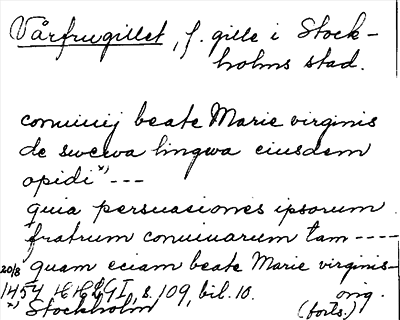 Vårfrugillet, f. gille i Stock-
holms stad.
conuiuij beate Marie virginis
de swewa lingwa eiusdem
opidi x) ---
quia persuasiones ipsorum
fratrum conuiuarum tam ----
20/8 quam eciam beate Marie virginis-
1454 HHLGI, s. 109, bil. 10. orig.
x) Stockholm (forts.)